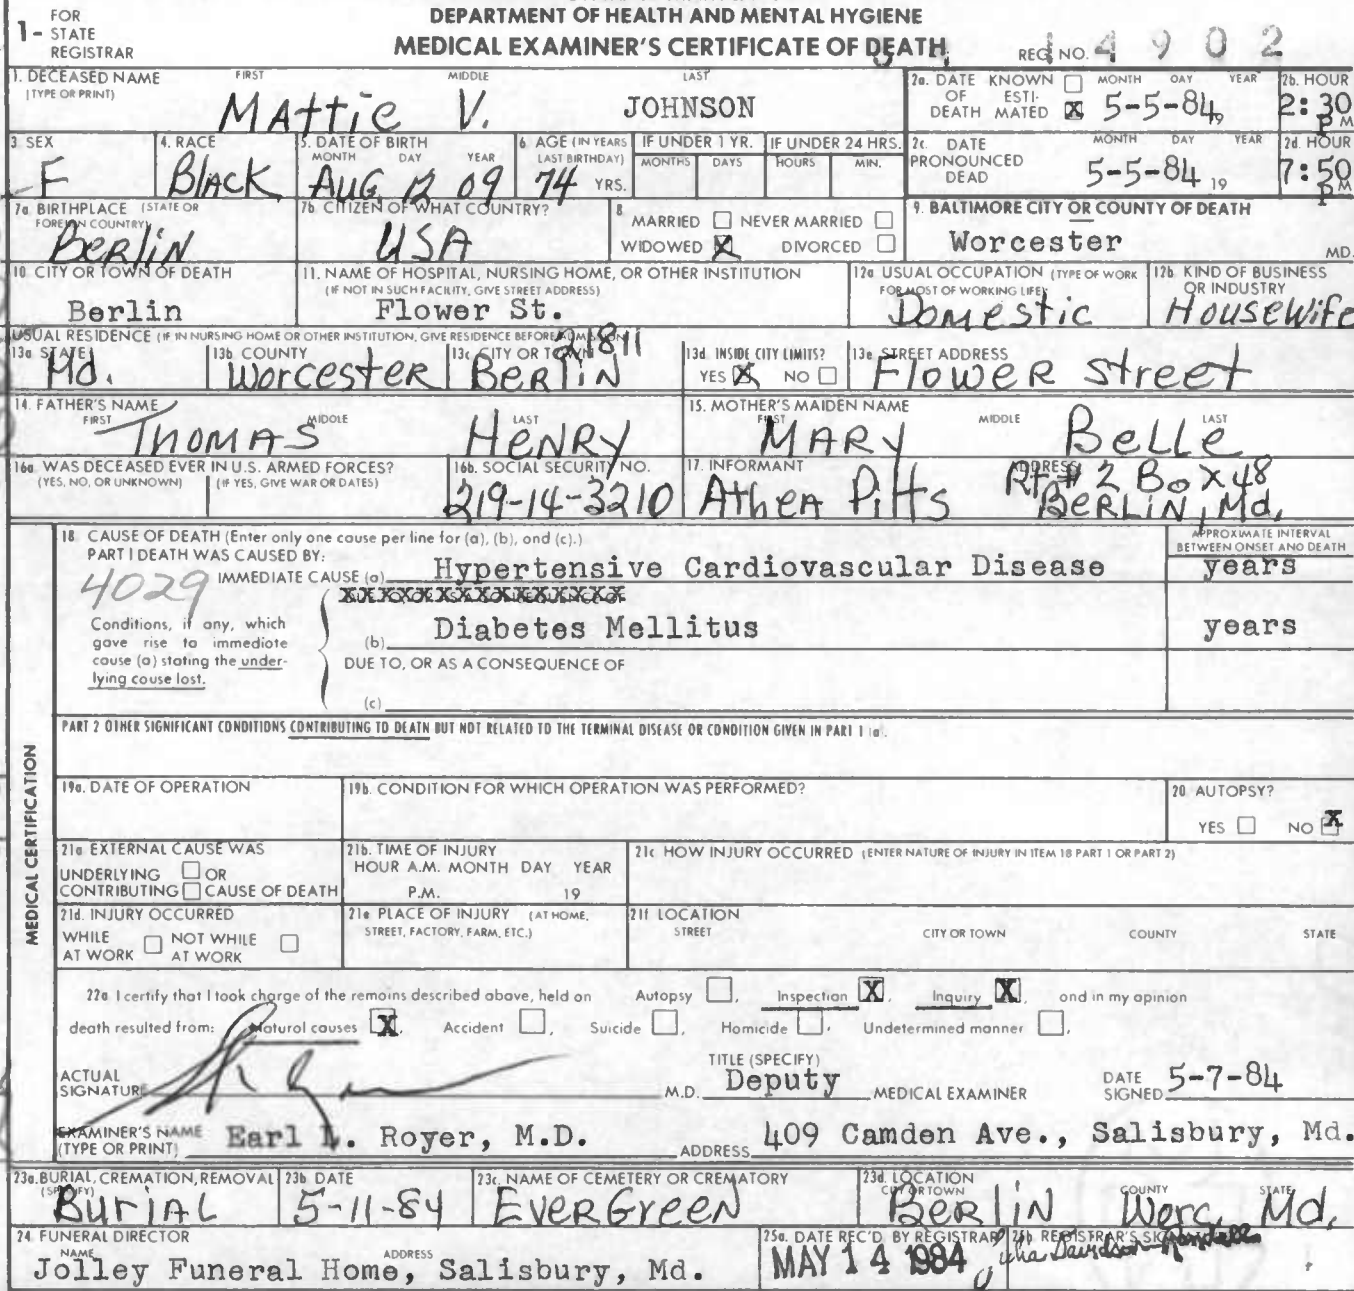 DEPARTMENT OF HEALTH AND MENTAL HYGIENE
MEDICAL EXAMINER'S CERTIFICATE OF DEATH
1- FOR STATE REGISTRAR
REG NO. 14902
1. DECEASED NAME (TYPE OR PRINT) FIRST MIDDLE LAST
Mattie V. JOHNSON
2a. DATE OF DEATH KNOWN ESTIMATED X MONTH DAY YEAR 5-5-84, 19
2b. HOUR 2:30 P M
3 SEX F
4. RACE Black
5. DATE OF BIRTH MONTH DAY YEAR AUG 12 09
6 AGE (IN YEARS LAST BIRTHDAY) 74 YRS.
IF UNDER 1 YR. MONTHS DAYS
IF UNDER 24 HRS. HOURS MIN.
2c. DATE PRONOUNCED DEAD MONTH DAY YEAR 5-5-84, 19
2d. HOUR 7:50 P M
7a BIRTHPLACE (STATE OR FOREIGN COUNTRY) Berlin
7b. CITIZEN OF WHAT COUNTRY? USA
8 MARRIED NEVER MARRIED
WIDOWED X DIVORCED
9. BALTIMORE CITY OR COUNTY OF DEATH
Worcester MD.
10. CITY OR TOWN OF DEATH
Berlin
11. NAME OF HOSPITAL, NURSING HOME, OR OTHER INSTITUTION
(IF NOT IN SUCH FACILITY, GIVE STREET ADDRESS)
Flower St.
12a USUAL OCCUPATION (TYPE OF WORK FOR MOST OF WORKING LIFE)
Domestic
12b. KIND OF BUSINESS OR INDUSTRY
Housewife
USUAL RESIDENCE (IF IN NURSING HOME OR OTHER INSTITUTION, GIVE RESIDENCE BEFORE ADMISSION)
13a STATE Md.
13b COUNTY Worcester
13c CITY OR TOWN Berlin 21811
13d INSIDE CITY LIMITS? YES X NO
13e STREET ADDRESS Flower Street
14. FATHER'S NAME FIRST MIDDLE LAST
Thomas Henry
15. MOTHER'S MAIDEN NAME FIRST MIDDLE LAST
MARY Belle
16a WAS DECEASED EVER IN U.S. ARMED FORCES?
(YES, NO, OR UNKNOWN) (IF YES, GIVE WAR OR DATES)
16b. SOCIAL SECURITY NO.
219-14-3210
17. INFORMANT ADDRESS
Athea Pitts Rt # 2 Box 48
BERLIN, Md.
MEDICAL CERTIFICATION
18 CAUSE OF DEATH (Enter only one cause per line for (a), (b), and (c).)
APPROXIMATE INTERVAL BETWEEN ONSET AND DEATH
PART I DEATH WAS CAUSED BY:
4029
IMMEDIATE CAUSE (a) Hypertensive Cardiovascular Disease years
Conditions, if any, which gave rise to immediate cause (a) stating the underlying cause last.
(b) Diabetes Mellitus years
DUE TO, OR AS A CONSEQUENCE OF
(c)
PART 2 OTHER SIGNIFICANT CONDITIONS CONTRIBUTING TO DEATH BUT NOT RELATED TO THE TERMINAL DISEASE OR CONDITION GIVEN IN PART 1 (a).
19a. DATE OF OPERATION
19b. CONDITION FOR WHICH OPERATION WAS PERFORMED?
20 AUTOPSY?
YES NO X
21a EXTERNAL CAUSE WAS
UNDERLYING OR
CONTRIBUTING CAUSE OF DEATH
21b. TIME OF INJURY
HOUR A.M. MONTH DAY YEAR
P.M. 19
21c HOW INJURY OCCURRED (ENTER NATURE OF INJURY IN ITEM 18 PART 1 OR PART 2)
21d. INJURY OCCURRED
WHILE AT WORK NOT WHILE AT WORK
21e PLACE OF INJURY (AT HOME, STREET, FACTORY, FARM, ETC.)
21f LOCATION
STREET CITY OR TOWN COUNTY STATE
22a I certify that I took charge of the remains described above, held on Autopsy, Inspection X, Inquiry X, and in my opinion
death resulted from: Natural causes X, Accident, Suicide, Homicide, Undetermined manner.
ACTUAL SIGNATURE M.D.
TITLE (SPECIFY) Deputy MEDICAL EXAMINER
DATE SIGNED 5-7-84
EXAMINER'S NAME (TYPE OR PRINT) Earl L. Royer, M.D.
ADDRESS 409 Camden Ave., Salisbury, Md.
23a. BURIAL, CREMATION, REMOVAL (SPECIFY) Burial
23b DATE 5-11-84
23c. NAME OF CEMETERY OR CREMATORY EverGreen
23d. LOCATION CITY OR TOWN COUNTY STATE
BERLIN Worc. Md.
24 FUNERAL DIRECTOR
NAME ADDRESS
Jolley Funeral Home, Salisbury, Md.
25a. DATE REC'D. BY REGISTRAR
MAY 14 1984
25b. REGISTRAR'S SIGNATURE
Davidson-Randall